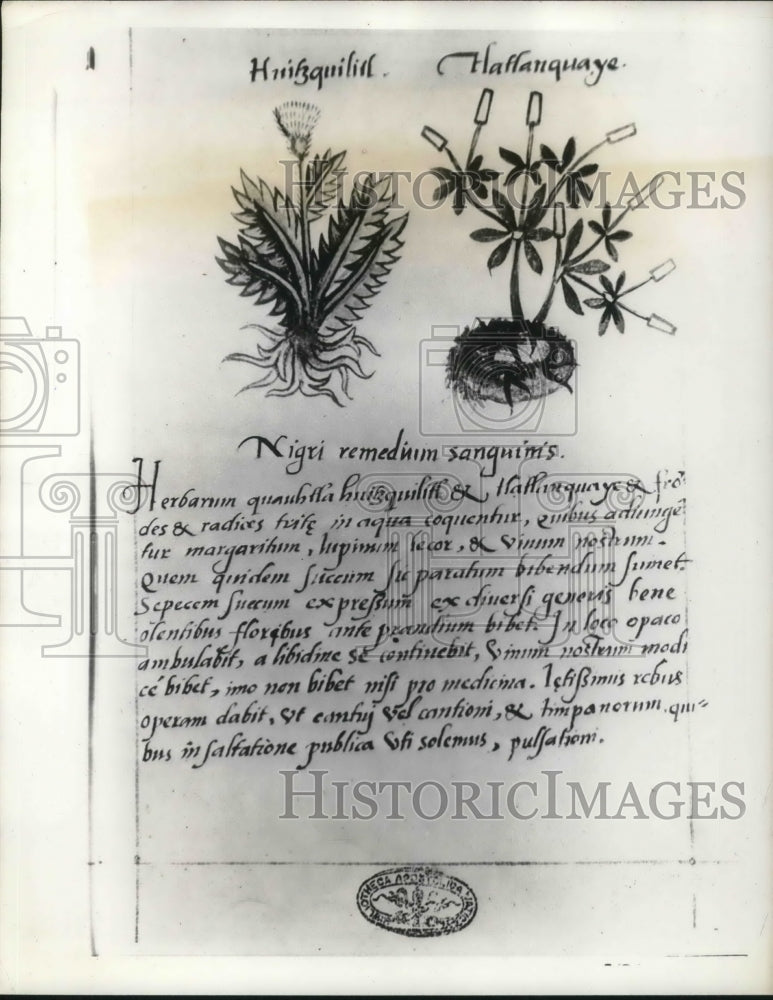 Huitzquilitl. Tlatlanquaye.
HISTORICIMAGES
Nigri remedium sanguinis.
Herbarum quauhtla huitzquilitl & tlatlanquaye & frō
des & radices tritę in aqua coquentur, quibus adiungē
tur margaritum, lupinum iecor, & vinum nostrum.
Quem quidem succum sic paratum bibendum sumet.
Sepecem succum expressum ex diversi generis bene
olentibus floribus ante prandium bibet. In loco opaco
ambulabit, a libidine se continebit, vinum nostrum modi
cé bibet, imo non bibet nisi pro medicina. Lętissimus rebus
operam dabit, vt cantuj vel cantioni, & timpanorum qui-
bus in saltatione publica vti solemus, pulsationi.
HISTORICIMAGES
BIBLIOTHECA APOSTOLICA VATICANA